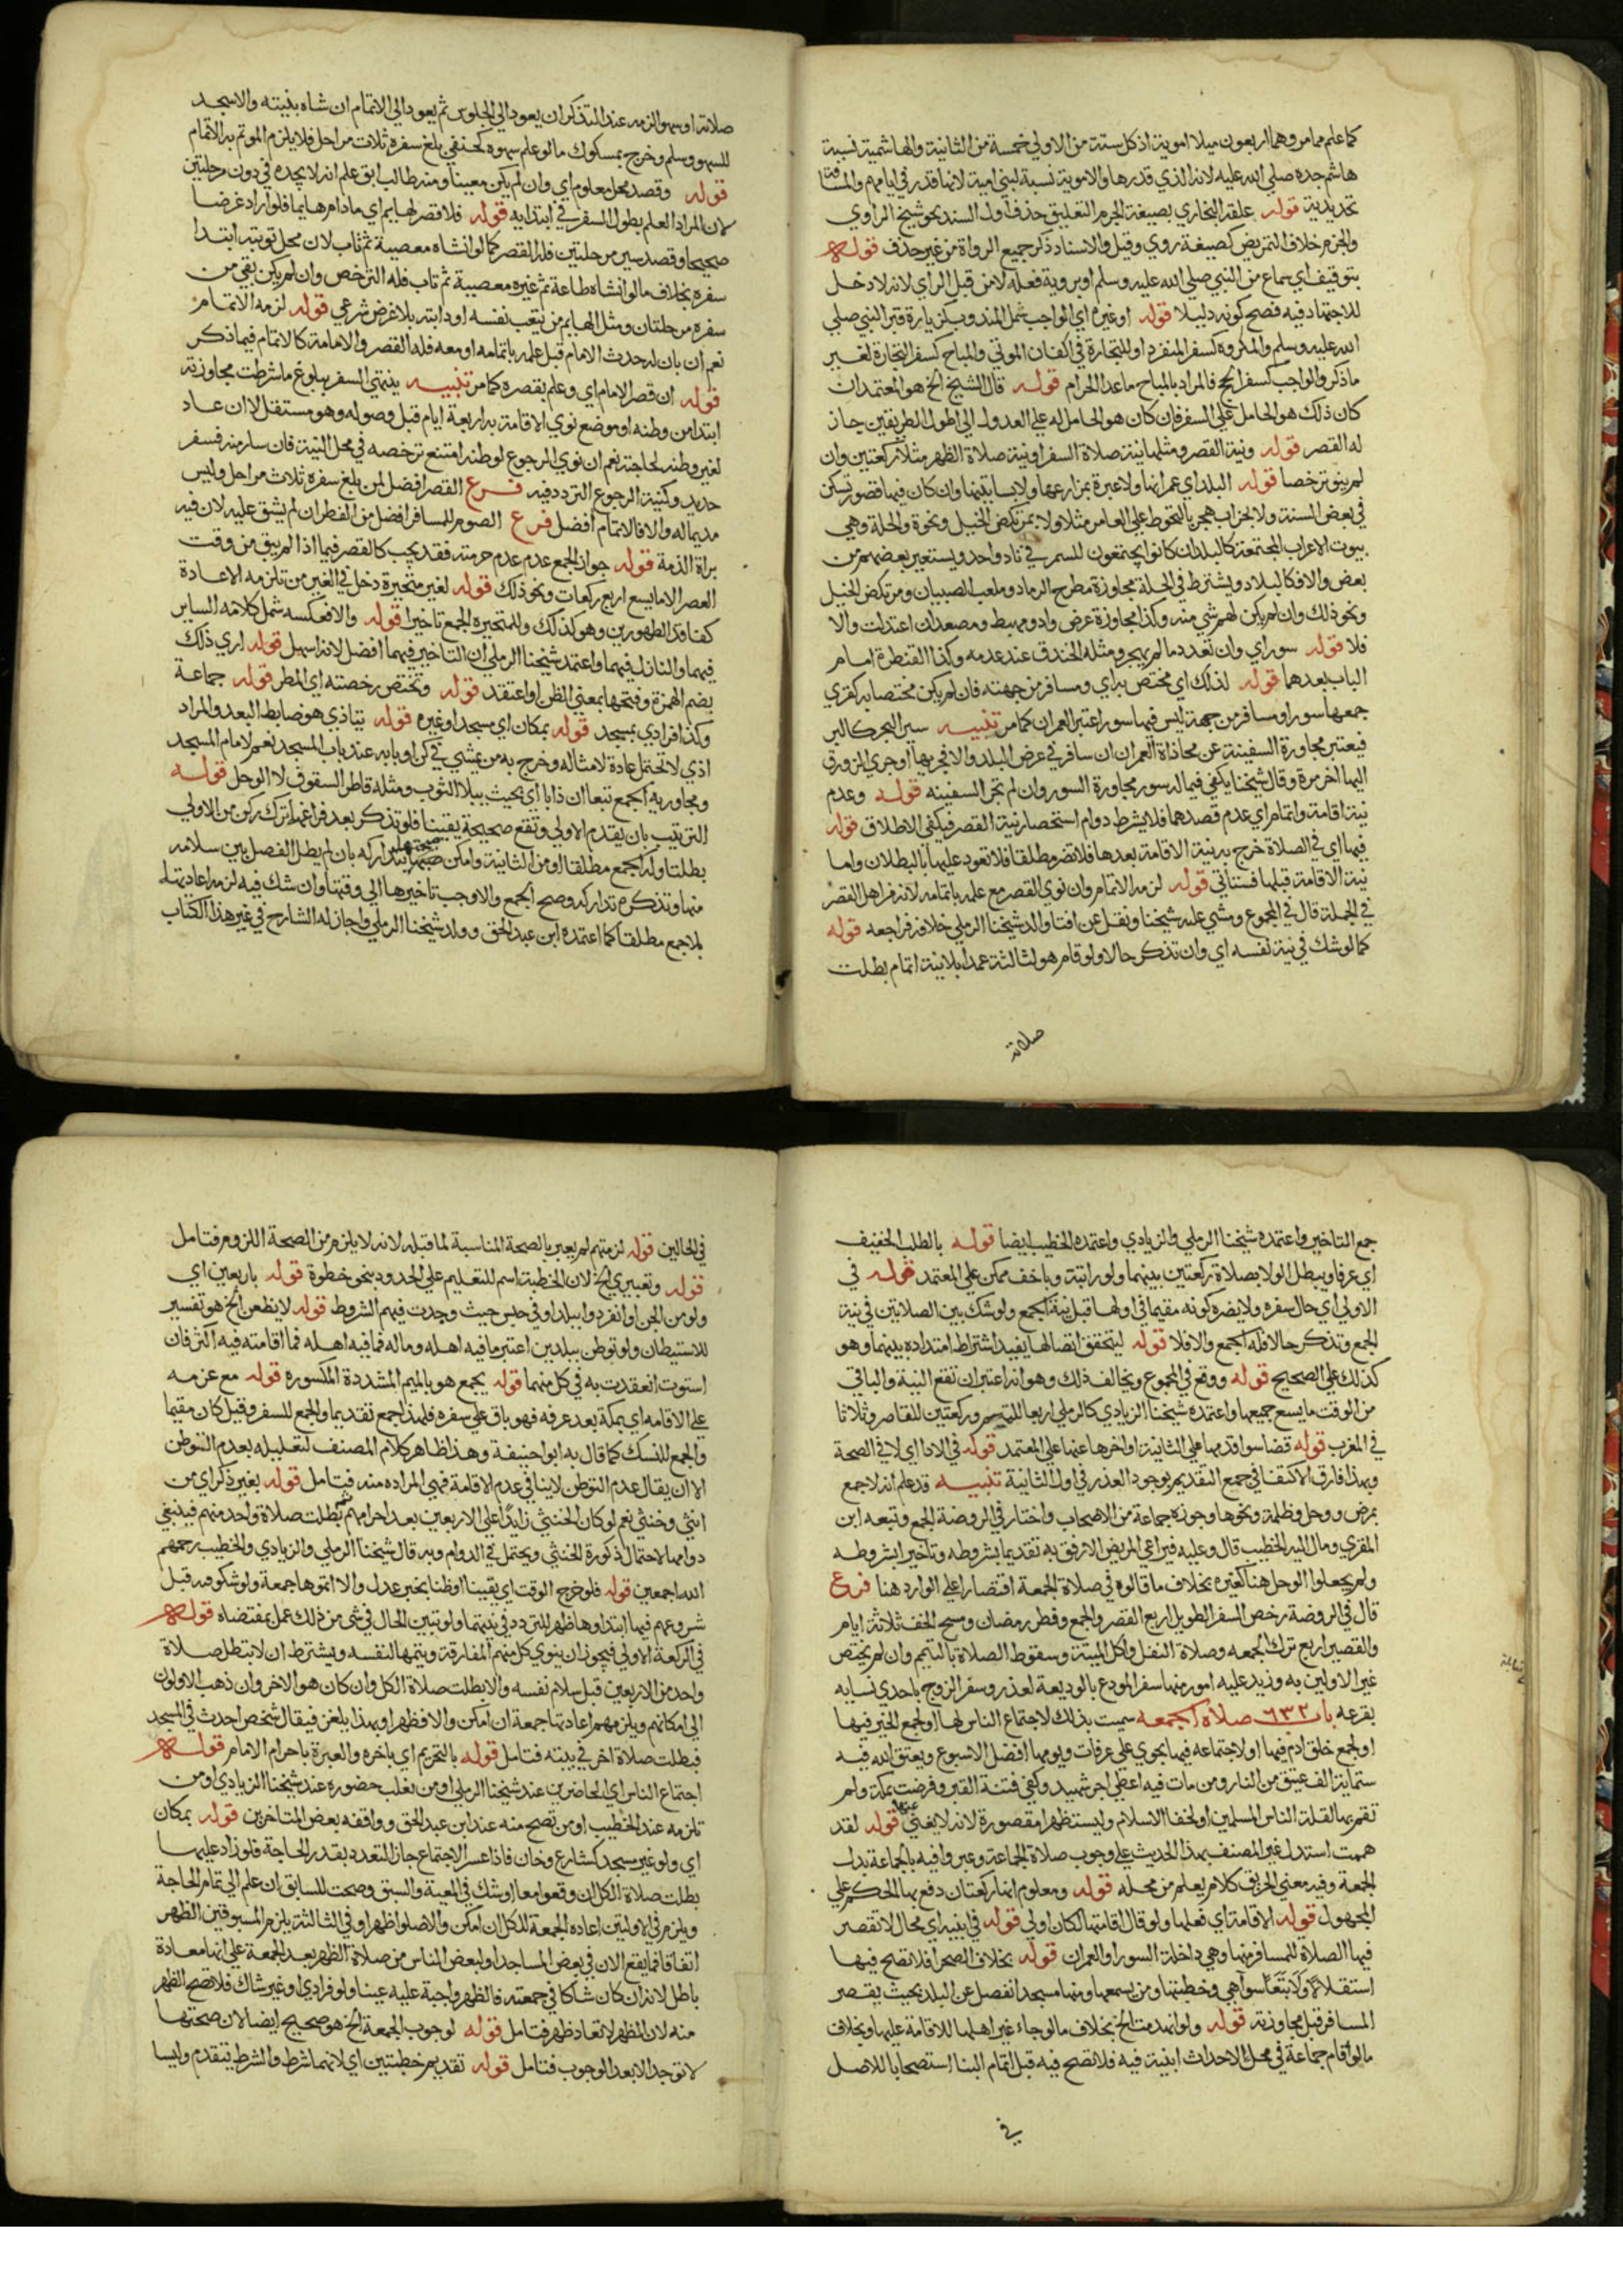 كما علم مما مر وهما اربعون ميلا اموية اذ كل ستة من الاولي خمسة من الثانية والهاشمية نسبة
هاشم جده صلي الله عليه لانه الذي قدرها والاموية نسبة لبني امية لانها قدر في ايامهم والمسافة
تحديدية قوله علقه البخاري بصيغة الجزم التعليق حذف اول السند نحو شيخ الراوي
والجزم خلاف التمريض كصيغة روي وقيل والاسناد ذكر جميع الرواة من غير حذف قوله
بتوقيف اي سماع من النبي صلي الله عليه وسلم او بروية فعله لا من قبل الراي لانه لا دخل
للاجتهاد فيه فصح كونه دليلا قوله او غيره اي الواجب شمل المندوب كزيارة قبر النبي صلي
الله عليه وسلم والمكروه كسفر المنفرد او للتجارة في اكفان الموتي والمباح كسفر التجارة لغير
ما ذكر والواجب كسفر الحج فالمراد بالمباح ما عدا الحرام قوله قال الشيخ الخ هو المعتمد ان
كان ذلك هو الحامل علي السفر فان كان هو الحامل له علي العدول الي اطول الطريقين جاز
له القصر قوله ونية القصر ومثلها نية صلاة السفر او نية صلاة الظهر مثلا ركعتين وان
لم ينو ترخصا قوله البلد اي عمرانها ولا عبرة بمزارعها ولا بساتينها وان كان فيها قصور تسكن
في بعض السنة ولا بخراب هجر بالتحوط علي العامر مثلا ولا بمرتكض الخيل ونحوه والحلة وهي
بيوت الاعراب المجتمعة كالبلد ان كانوا يجتمعون للسمر في ناد واحد ويستعير بعضهم من
بعض والا فكالبلاد ويشترط في الحلة مجاوزة مطرح الرماد وملعب الصبيان ومرتكض الخيل
ونحو ذلك وان لم يكن لهم شي منه وكذا مجاوزة عرض واد ومهبط ومصعد ان اعتدلت والا
فلا قوله سور اي وان تعدد ما لم يهجر ومثله الخندق عند عدمه وكذا القنطرة امام
الباب بعدها قوله لذلك اي مختص به اي ومسافر من جهته فان لم يكن مختصا به كقري
جمعها سور او مسافر من جهة ليس فيها سور اعتبر العمران كما مر تنبيه سير البحر كالبر
فيعتبر مجاوزة السفينة عن محاذاة العمران ان سافر في عرض البلد والا فبجريها او جري الزورق
اليها اخر مرة وقال شيخنا يكفي فيما له سور مجاوزة السور وان لم تجر السفينة قوله وعدم
نية اقامة واتمام اي عدم قصدهما فلا يشترط دوام استحضار نية القصر فيكفي الاطلاق قوله
فيها اي في الصلاة خرج به نية الاقامة بعدها فلا تضر مطلقا فلا تعود عليها بالبطلان واما
نية الاقامة قبلها فستاتي قوله لزمه الاتمام وان نوي القصر مع علمه باتمامه لانه من اهل القصر
في الجملة قال في المجموع ومشي عليه شيخنا ونقل عن افتا والد شيخنا الرملي خلافه فراجعه قوله
كما لو شك في نية نفسه اي وان تذكر حالا ولو قام هو لثالثة عمدا بلا نية اتمام بطلت
صلاته
صلاته او سهوا لزمه عند التذكر ان يعود الي الجلوس ثم يعود الي الاتمام ان شاه بنيته والا سجد
للسهو وسلم وخرج بمسكوك ما لو علم سهوه كحنفي بلغ سفره ثلاث مراحل فلا يلزم الموتم به الاتمام
قوله وقصد محل معلوم اي وان لم يكن معينا ومنه طالب ابق علم انه لا يجده في دون مرحلتين
لان المراد العلم بطول السفر في ابتدايه قوله فلا قصر لهايم اي ما دام هايما فلو اراد غرضا
صحيحا وقصد سير مرحلتين فله القصر كما لو انشاه معصية ثم تاب لان محل توبته ابتدا
سفره بخلاف ما لو انشاه طاعة ثم غيره معصية ثم تاب فله الترخص وان لم يكن بقي من
سفره مرحلتان ومثل الهايم من يتعب نفسه او دابته بلا غرض شرعي قوله لزمه الاتمام
نعم ان بان له حدث الامام قبل علمه باتمامه او معه فله القصر والامامة كالاتمام فيما ذكر
قوله ان قصر الامام اي وعلم بقصره كما مر تنبيه ينتهي السفر ببلوغ ما شرطت مجاوزته
ابتدا من وطنه او موضع نوي الاقامة به اربعة ايام قبل وصوله وهو مستقل لا ان عاد
لغير وطنه لحاجته نعم ان نوي الرجوع لوطنه امتنع ترخصه في محل النية فان سار منه فسفر
جديد وكنية الرجوع التردد فيه فرع القصر افضل لمن بلغ سفره ثلاث مراحل وليس
مديما له والا فالاتمام افضل فرع الصوم للمسافر افضل من الفطر ان لم يشق عليه لان فيه
براة الذمة قوله جواز الجمع عدم عدم حرمته فقد يجب كالقصر فيما اذا لم يبق من وقت
العصر الا ما يسع اربع ركعات ونحو ذلك قوله لغير متحيرة دخل في الغير من تلزمه الاعادة
كفاقد الطهورين وهو كذلك وللمتحيرة الجمع تاخيرا قوله والا فعكسه شمل كلامه الساير
فيهما والنازل فيهما واعتمد شيخنا الرملي ان التاخير فيهما افضل لانه اسهل قوله اري ذلك
بضم الهمزة وفتحها بمعني الظن او اعتقد قوله وتختص رخصته اي المطر قوله جماعة
وكذا فرادي بمسجد قوله بمكان اي مسجد او غيره قوله يتاذي هو ضابط البعد والمراد
اذي لا تحتمل عادة لامثاله وخرج به من يمشي في كن او بابه عند باب المسجد نعم لامام المسجد
ومجاوريه الجمع تبعا ان ذابا اي بحيث يبلا الثوب ومثله قاطر السقوف لا الوحل قوله
الترتيب بان يقدم الاولي وتقع صحيحة يقينا فلو تذكر بعد فراغهما ترك ركن من الاولي
بطلتا وله الجمع مطلقا او من الثانية وامكن تداركه بان لم يطل الفصل بين سلامه
منها وتذكره تداركه وصح الجمع والا وجب تاخيرها الي وقتها وان شك فيه لزمه اعادتهما
بلا جمع مطلقا كما اعتمده ابن عبد الحق وولد شيخنا الرملي واجاز له الشارح في غير هذا الكتاب
جمع التاخير واعتمده شيخنا الرملي والزيادي واعتمده الخطيب ايضا قوله بالطلب الخفيف
اي عرفا ويبطل الولا بصلاة ركعتين بينهما ولو راتبة وباخف ممكن علي المعتمد قوله في
الاولي اي حال سفره ولا يضره كونه مقيما في اولها قبل نية الجمع ولو شك بين الصلاتين في نية
الجمع وتذكر حالا فله الجمع والا فلا قوله ليتحقق اتصالها يفيد اشتراط امتداده بينهما وهو
كذلك علي الصحيح قوله ووقع في المجموع ويخالف ذلك وهو انه اعتبر ان تقع النية والباقي
من الوقت ما يسع جميعها واعتمده شيخنا الزيادي كالرملي اربعا للمتم وركعتين للقاصر وثلاثا
في المغرب قوله قضا سوا قدمها علي الثانية او اخرها عنها علي المعتمد قوله في الاداي لا في الصحة
وبهذا فارق الاكتفا في جمع التقديم بوجود العذر في اول الثانية تنبيه قد علم انه لا جمع
بمرض ووحل وظلمة ونحوها وجوزه جماعة من الاصحاب واختار في الروضة الجمع وتبعه ابن
المقري ومال اليه الخطيب قال وعليه فيراعي المريض الارفق به تقديما بشروطه وتاخيرا بشروطه
ولم يجعلوا الوحل هنا كغيره بخلاف ما قالوه في صلاة الجمعة اقتصارا علي الوارد هنا فرع
قال في الروضة رخص السفر الطويل اربع القصر والجمع وفطر رمضان ومسح الخف ثلاثة ايام
والقصير اربع ترك الجمعه وصلاة النفل واكل الميتة وسقوط الصلاة بالتيمم وان لم يختص
غير الاولين به وزيد عليه امور منها سفر المودع بالوديعة لعذر وسفر الزوج باحدي نسايه
بقرعه باب صلاة الجمعه سميت بذلك لاجتماع الناس لها او لجمع الخير فيها
او لجمع خلق ادم فيها او لاجتماعه فيها بحوي علي عرفات ويومها افضل الاسبوع ويعتق الله فيه
ستماية الف عتيق من النار ومن مات فيه اعطي اجر شهيد وكفي فتنة القبر وفرضت بمكة ولم
تقم بها لقلة الناس المسلمين او لخفا الاسلام وليست ظهرا مقصورة لانه لا يغني عنها قوله لقد
هممت استدل غير المصنف بهذا الحديث علي وجوب صلاة الجماعة وعبر وافيه بالجماعة بدل
الجمعة وفيه معني الحريق كلام يعلم من محله قوله ومعلوم انها ركعتان دفع بها الحكم علي
المجهول قوله الاقامة اي فعلها ولو قال اقامتها لكان اولي قوله في ابنية اي محال لا تقصر
فيها الصلاة للمسافر منها وهي داخلة السور او العمران قوله بخلاف الصحرا فلا تصح فيها
استقلالا ولا تبعا سوا هي وخطبتها ومن يسمعها ومنها مسجد انفصل عن البلد بحيث يقصر
المسافر قبل مجاوزته قوله ولو انهدمت الخ بخلاف ما لو جاء غير اهلها للاقامة عليها وبخلاف
ما لو اقام جماعة في محل لاحداث ابنية فيه فلا تصح فيه قبل اتمام البنا استصحابا للاصل
في
في الحالين قوله لزمتهم لم يعبر بالصحة المناسبة لما قبله لانه لا يلزم من الصحة اللزوم فتامل
قوله وتعبيري الخ لان الخطبة اسم للتعليم علي الحدود بنحو خطوة قوله باربعين اي
ولو من الجن او انفردوا ببلد او في حبس حيث وجدت فيهم الشروط قوله لا يظعن الخ هو تفسير
للاستيطان ولو توطن ببلدين اعتبر ما فيه اهله وماله فما فيه اهله فما اقامته فيه اكثر فان
استوت انعقدت به في كل منهما قوله يجمع هو بالميم المشددة المكسورة قوله مع عزمه
علي الاقامه اي بمكة بعد عرفه فهو باق علي سفره فلهذا جمع تقديما والجمع للسفر وقيل كان مقيما
والجمع للنسك كما قال به ابو حنيفة وهذا ظاهر كلام المصنف لتعليله بعدم التوطن
الا ان يقال عدم التوطن لا ينافي عدم الاقامة فهي المراده منه فتامل قوله بغير ذكر اي من
انثي وخنثي نعم لو كان الخنثي زايدا علي الاربعين بعد احرامهم ثم بطلت صلاة واحد منهم فينبغي
دوامها لاحتمال ذكورة الخنثي ويحتمل في الدوام وبه قال شيخنا الرملي والزيادي والخطيب رحمهم
الله اجمعين قوله فلو خرج الوقت اي يقينا او ظنا بخبر عدل والا اتموها جمعة ولو شكوا فيه قبل
شروعهم فيها ابتداوها ظهرا للتردد في نيتها ولو تبين الحال في شي من ذلك عمل بمقتضاه قوله
في الركعة الاولي فيجوز ان ينوي كل منهم المفارقة ويتمها لنفسه ويشترط ان لا تبطل صلاة
واحد من الاربعين قبل سلام نفسه والا بطلت صلاة الكل وان كان هو الاخر وان ذهب الاولون
الي امكانهم ويلزمهم اعادتها جمعة ان امكن والا فظهرا وبهذا يلغز فيقال شخص احدث في المسجد
فبطلت صلاة اخر في بيته فتامل قوله بالتحريم اي باخره والعبرة باحرام الامام قوله
اجتماع الناس اي الحاضرين عند شيخنا الرملي او من يغلب حضوره عند شيخنا الزيادي او من
تلزمه عند الخطيب او من تصح منه عند ابن عبد الحق ووافقه بعض المتاخرين قوله بمكان
اي ولو غير مسجد كشارع وخان فاذا عسر الاجتماع جاز التعدد بقدر الحاجة فلو زاد عليها
بطلت صلاة الكل ان وقعوا معا او شك في المعية والسبق وصحت للسابق ان علم الي تمام الحاجة
ويلزم في الاوليتين اعادة الجمعة للكل ان امكن والا صلوا ظهرا وفي الثالثة يلزم المسبوقين الظهر
اتفاقا فما يقع الان في بعض المساجد او لبعض الناس من صلاة الظهر بعد الجمعة علي انها معادة
باطل لانه ان كان شاكا في جمعته فالظهر واجبة عليه عينا ولو فرادي او غير شاك فلا تصح الظهر
منه لان الظهر لا تعاد ظهر فتامل قوله لوجوب الجمعة الخ هو صحيح ايضا لان صحتها
لا توجد الا بعد الوجوب فتامل قوله تقديم خطبتين اي لانهما شرط والشرط يتقدم وليسا